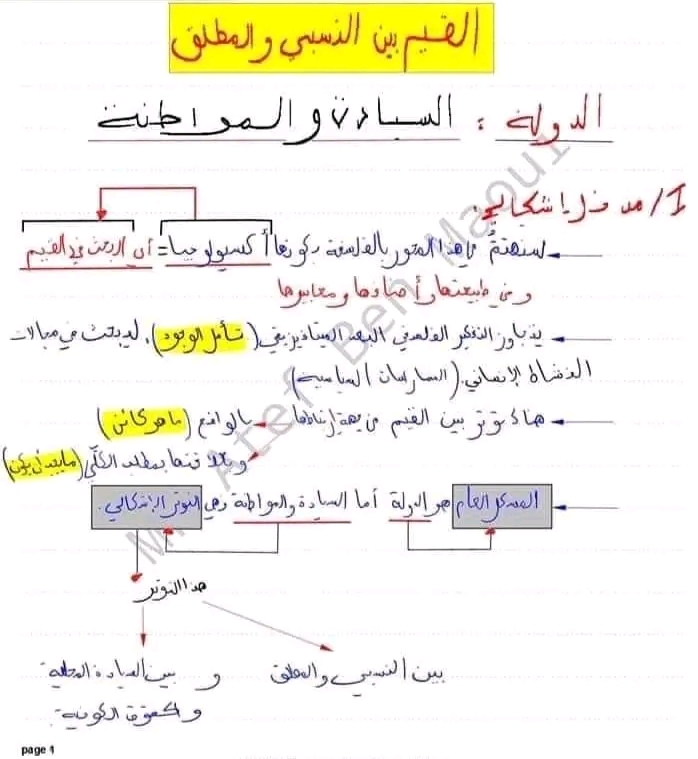 القيم بين النسبي والمطلق
الدولة : السيادة والمواطنة
I/ مدخل إشكالي:
سنهتم في هذا المحور بالفلسفة بكونها أكسيولوجيا = أي البحث في القيم
وفي طبيعتها وأصنافها ومعاييرها
يتجاوز التفكير الفلسفي البعد الميتافيزيقي (تأمل الوجود)، ليبحث في مجالات
النشاط الإنساني. (الممارسات السياسية)
هناك توتر بين القيم من جهة إرتباطها بالواقع (ما هو كائن)
وعلاقتها بمطلب الكلّي (ما يجب أن يكون)
المشكل العام هو الدولة أما السيادة والمواطنة فهي التوتر الإشكالي.
هذا التوتر
بين النسبي والمطلق و بين السيادة المحلية
والحقوق الكونية.
Mr Atef Ben Maoui
page 1